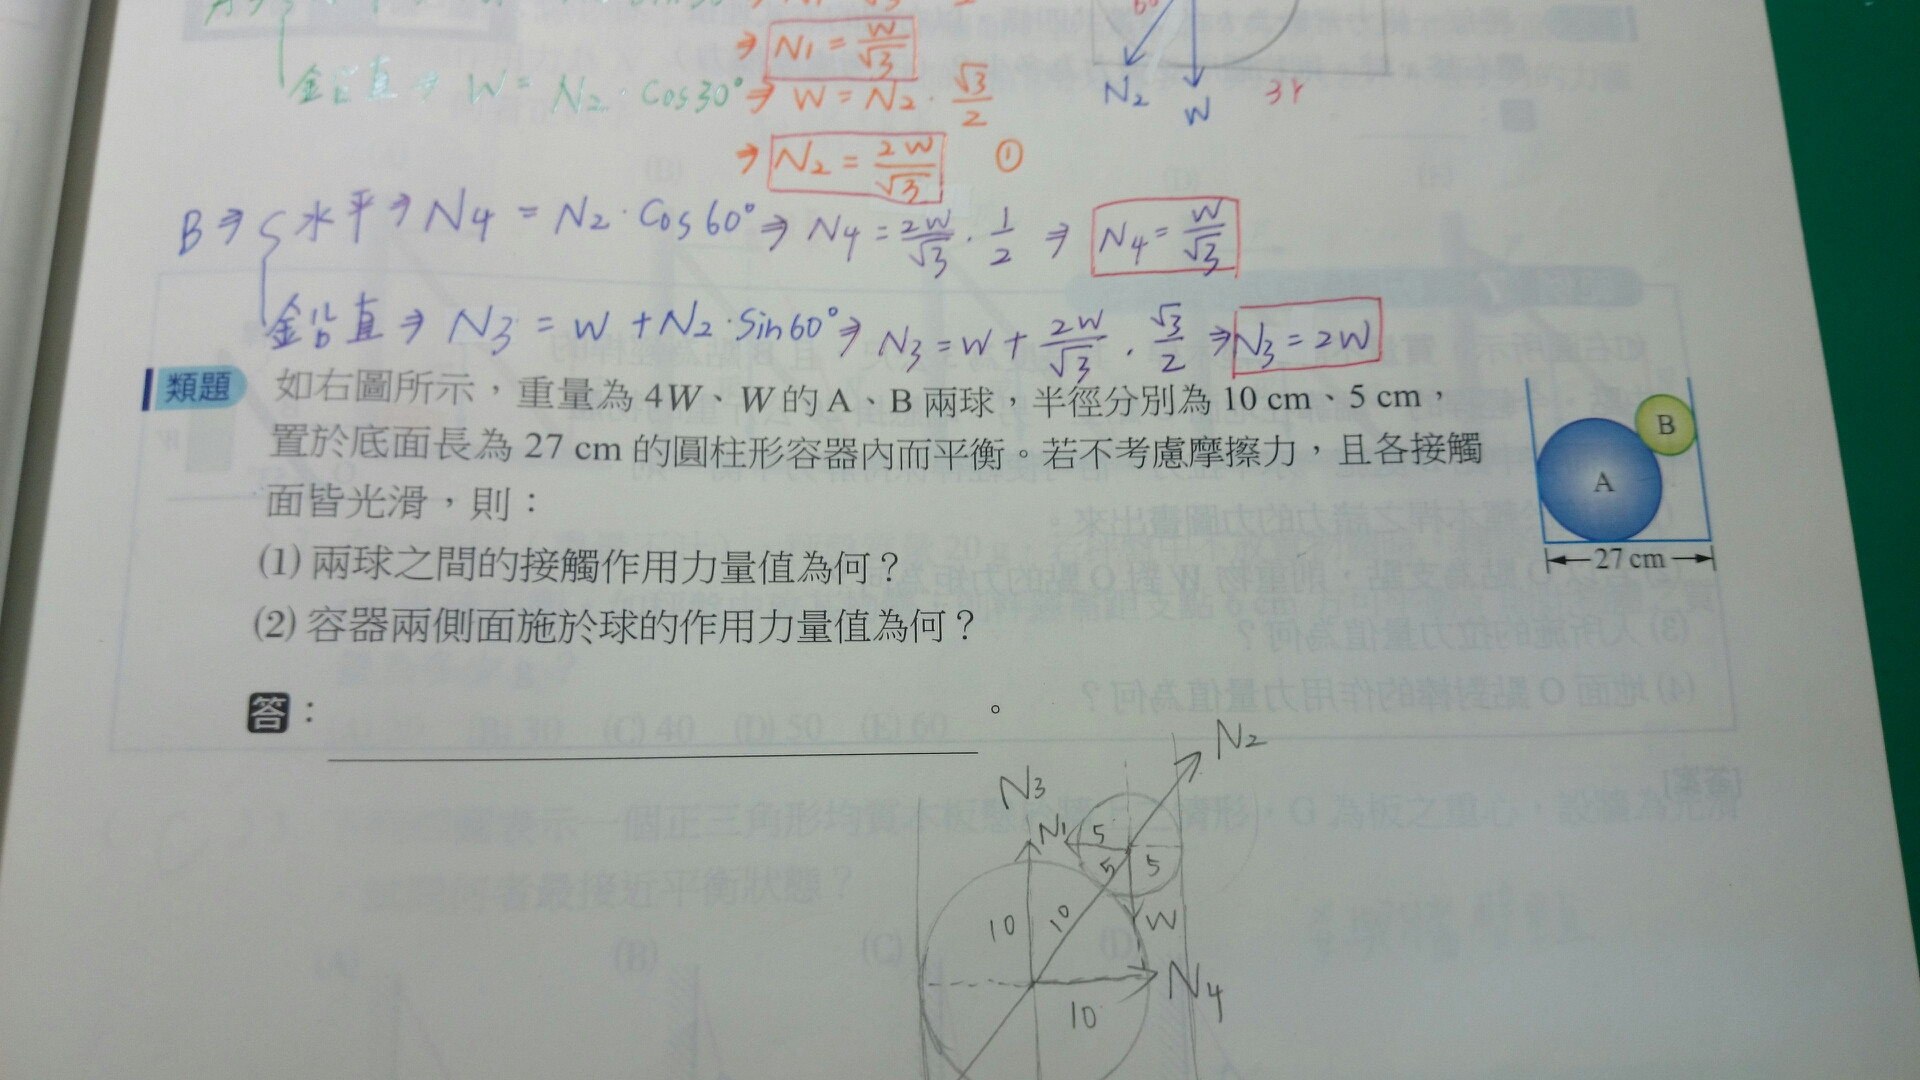 ⇒ N1 = W/√3
鉛直 ⇒ W = N2 · Cos30° ⇒ W = N2 · √3/2
⇒ N2 = 2W/√3 ①
N2 W 3r
B ⇒ 水平 ⇒ N4 = N2 · Cos60° ⇒ N4 = 2W/√3 · 1/2 ⇒ N4 = W/√3
鉛直 ⇒ N3 = W + N2 · Sin60° ⇒ N3 = W + 2W/√3 · √3/2 ⇒ N3 = 2W
類題 如右圖所示，重量為 4W、W 的 A、B 兩球，半徑分別為 10 cm、5 cm，
置於底面長為 27 cm 的圓柱形容器內而平衡。若不考慮摩擦力，且各接觸
面皆光滑，則：
(1) 兩球之間的接觸作用力量值為何？
(2) 容器兩側面施於球的作用力量值為何？
B
A
27 cm
答：。
N2
N3
N1 5
5 5
10 10 W
N4
10